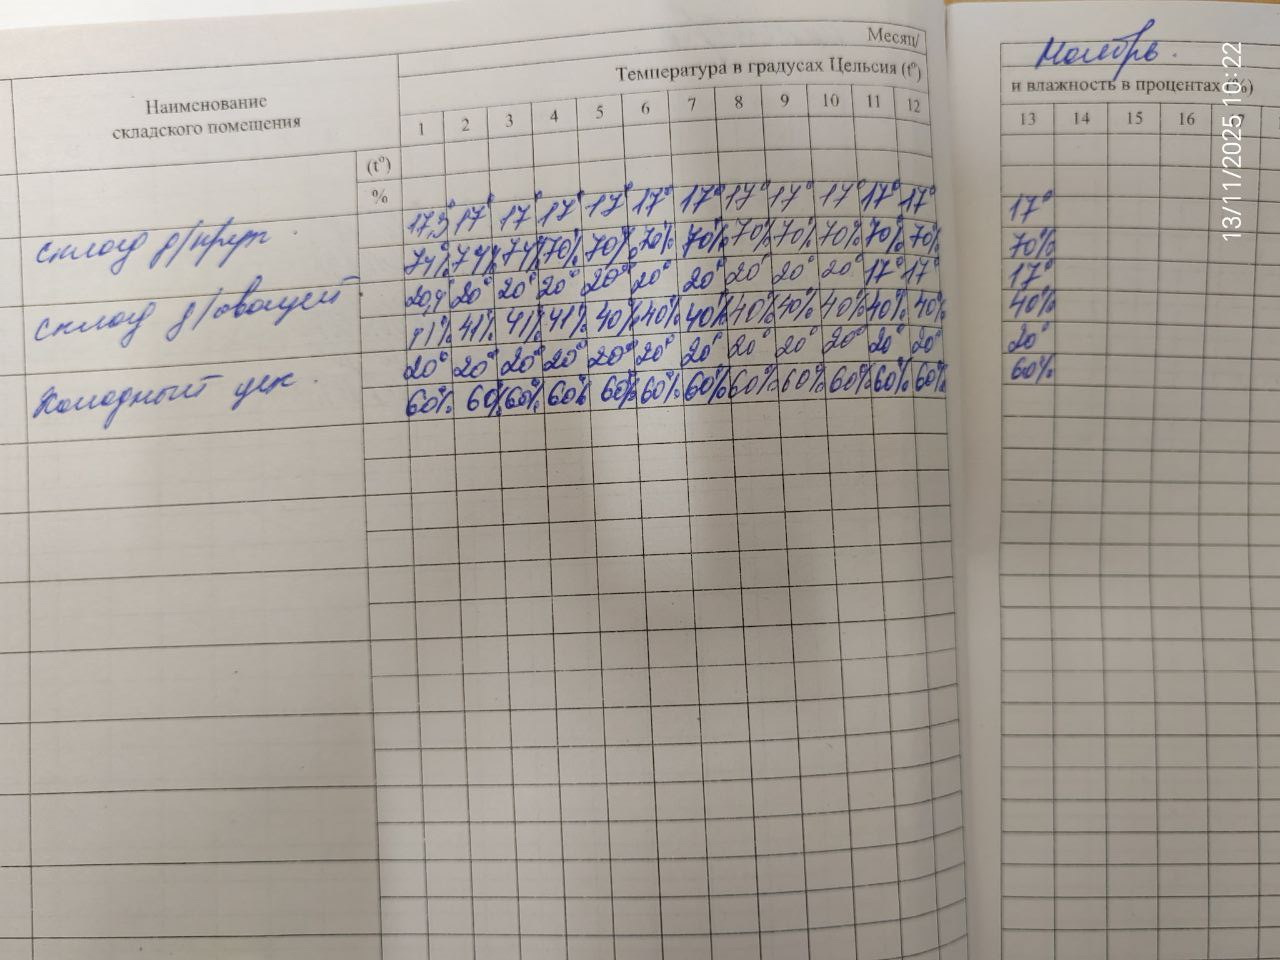 Месяц/
Ноябрь.
Температура в градусах Цельсия (t°)
и влажность в процентах (%)
Наименование
складского помещения
1 2 3 4 5 6 7 8 9 10 11 12 13 14 15 16
(t°)
%
17,3° 17° 17° 17° 17° 17° 17° 17° 17° 17° 17° 17° 17°
склад д/круп.
74% 74% 74% 70% 70% 70% 70% 70% 70% 70% 70% 70% 70%
20,4° 20° 20° 20° 20° 20° 20° 20° 20° 20° 17° 17° 17°
склад д/овощей.
41% 41% 41% 40% 40% 40% 40% 40% 40% 40% 40% 40%
20° 20° 20° 20° 20° 20° 20° 20° 20° 20° 20° 20° 20°
Холодный цех.
60% 60% 60% 60% 60% 60% 60% 60% 60% 60% 60% 60% 60%
13/11/2025 10:22